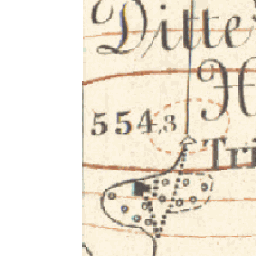 Ditte
H
554,3
Tri